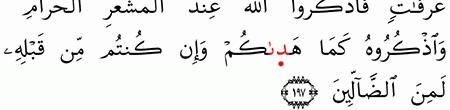 عَرَفَٰتٖ فَٱذۡكُرُواْ ٱللَّهَ عِندَ ٱلۡمَشۡعَرِ ٱلۡحَرَامِ
وَٱذۡكُرُوهُ كَمَا هَدَىٰكُمۡ وَإِن كُنتُم مِّن قَبۡلِهِۦ
لَمِنَ ٱلضَّآلِّينَ ١٩٧